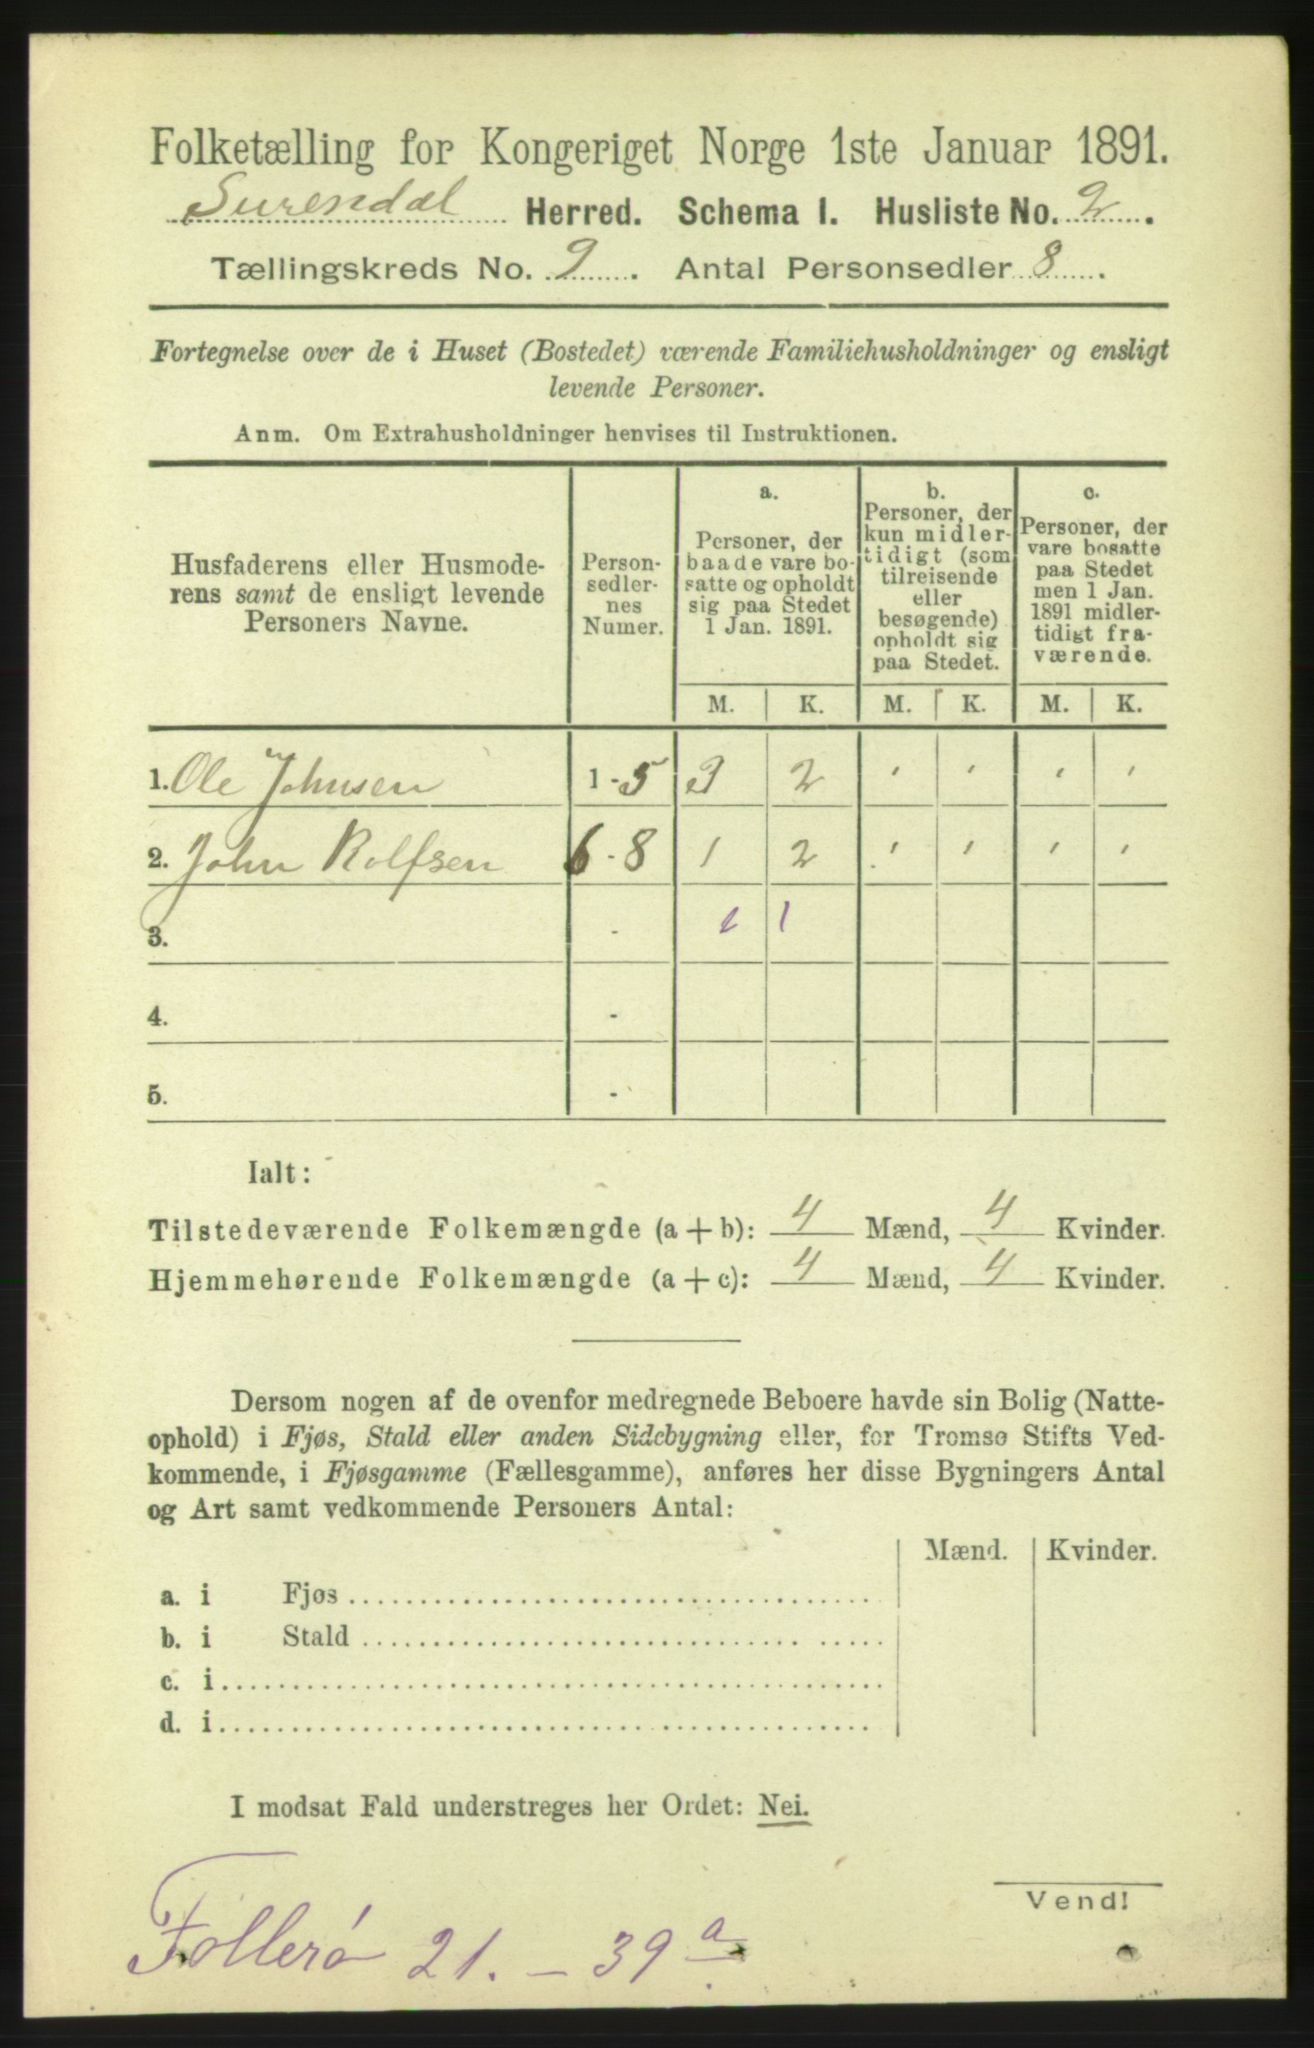 Folketælling for Kongeriget Norge 1ste Januar 1891.
Surendal Herred. Schema I. Husliste No. 2.
Tællingskreds No. 9. Antal Personsedler 8.
Fortegnelse over de i Huset (Bostedet) værende Familiehusholdninger og ensligt
levende Personer.
Anm. Om Extrahusholdninger henvises til Instruktionen.
Husfaderens eller Husmode-
rens samt de ensligt levende
Personers Navne.
Person-
sedler-
nes
Numer.
a.
Personer, der
baade vare bo-
satte og opholdt
sig paa Stedet
1 Jan. 1891.
b.
Personer, der
kun midler-
tidigt (som
tilreisende
eller
besøgende)
opholdt sig
paa Stedet.
c.
Personer, der
vare bosatte
paa Stedet
men 1 Jan.
1891 midler-
tidigt fra-
værende.
M. K. M. K. M. K.
1. Ole Johnsen 1 - 5 3 2 ' ' ' '
2. John Rolfsen 6 - 8 1 2 ' ' ' '
3. - 1
4. -
5. -
Ialt:
Tilstedeværende Folkemængde (a + b): 4 Mænd, 4 Kvinder.
Hjemmehørende Folkemængde (a + c): 4 Mænd, 4 Kvinder.
Dersom nogen af de ovenfor medregnede Beboere havde sin Bolig (Natte-
ophold) i Fjøs, Stald eller anden Sidebygning eller, for Tromsø Stifts Ved-
kommende, i Fjøsgamme (Fællesgamme), anføres her disse Bygningers Antal
og Art samt vedkommende Personers Antal:
Mænd. Kvinder.
a. i Fjøs
b. i Stald
c. i
d. i
I modsat Fald understreges her Ordet: Nei.
Vend!
Follerø 21. - 39 a